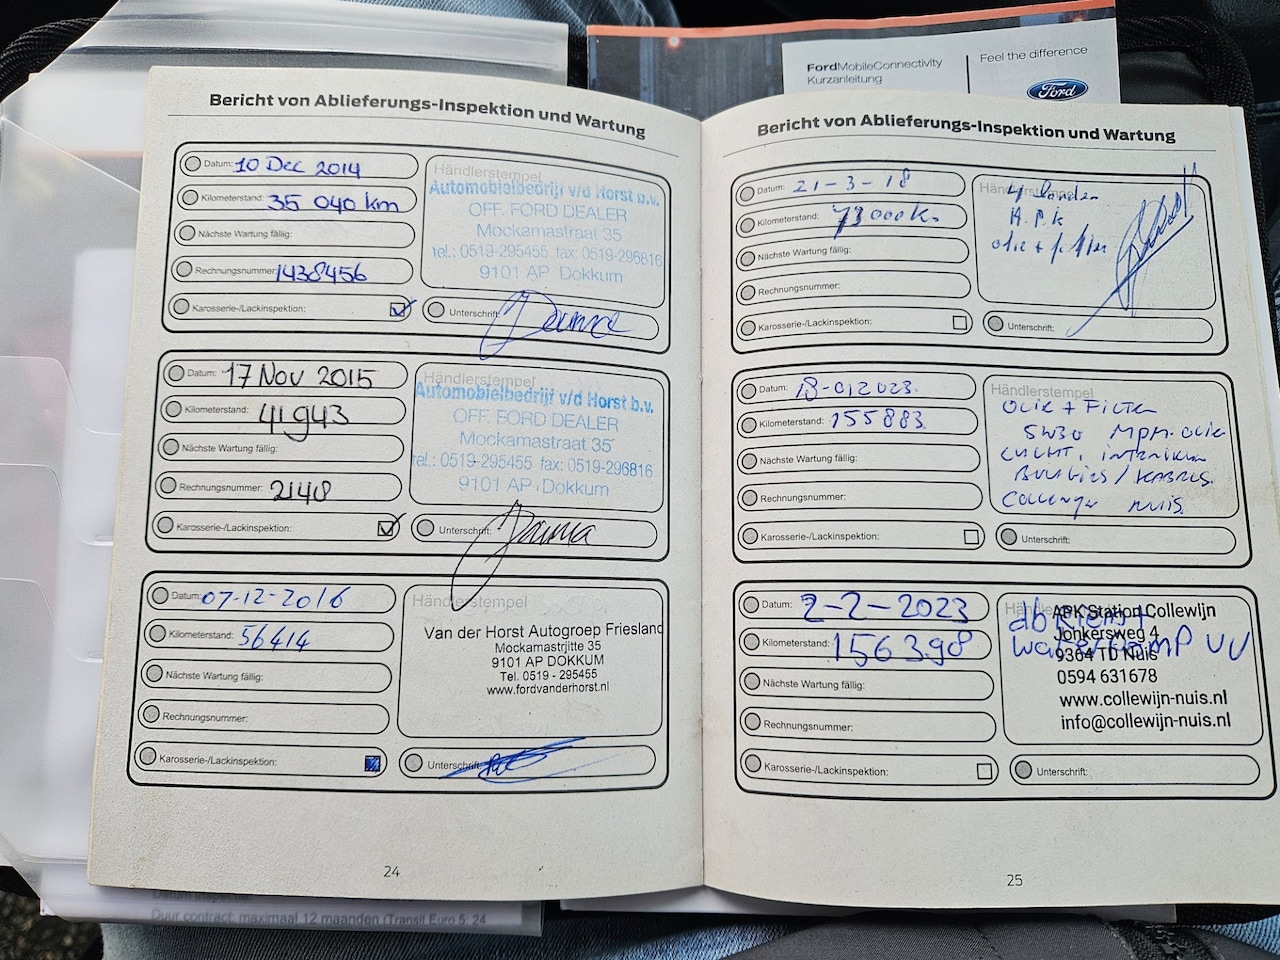 FordMobileConnectivity
Kurzanleitung
Feel the difference
Ford
Bericht von Ablieferungs-Inspektion und Wartung
Datum: 10 Dec 2014
Kilometerstand: 35 040 km
Nächste Wartung fällig:
Rechnungsnummer: 1438456
Karosserie-/Lackinspektion:
Händlerstempel
Automobielbedrijf v/d Horst b.v.
OFF. FORD DEALER
Mockamastraat 35
tel.: 0519-295455 fax: 0519-296816
9101 AP Dokkum
Unterschrift:
Datum: 17 Nov 2015
Kilometerstand: 41943
Nächste Wartung fällig:
Rechnungsnummer: 2148
Karosserie-/Lackinspektion:
Händlerstempel
Automobielbedrijf v/d Horst b.v.
OFF. FORD DEALER
Mockamastraat 35
tel.: 0519-295455 fax: 0519-296816
9101 AP Dokkum
Unterschrift:
Datum: 07-12-2016
Kilometerstand: 56414
Nächste Wartung fällig:
Rechnungsnummer:
Karosserie-/Lackinspektion:
Händlerstempel
Van der Horst Autogroep Friesland
Mockamastrjitte 35
9101 AP DOKKUM
Tel. 0519 - 295455
www.fordvanderhorst.nl
Unterschrift:
24
Bericht von Ablieferungs-Inspektion und Wartung
Datum: 21-3-18
Kilometerstand: 73000km
Nächste Wartung fällig:
Rechnungsnummer:
Karosserie-/Lackinspektion:
Händlerstempel
A.P.K
olie + filter
Unterschrift:
Datum:
Kilometerstand: 155883
Nächste Wartung fällig:
Rechnungsnummer:
Karosserie-/Lackinspektion:
Händlerstempel
OLIE + FILTER
5W30 MPM-OLIE
LUCHT, INTERIEUR
Unterschrift:
Datum: 2-2-2023
Kilometerstand: 156398
Nächste Wartung fällig:
Rechnungsnummer:
Karosserie-/Lackinspektion:
APK Station Collewijn
Jonkersweg 4
9364 TD Nuis
0594 631678
www.collewijn-nuis.nl
info@collewijn-nuis.nl
Unterschrift:
25
Duur contract: maximaal 12 maanden (Transit Euro 5: 24